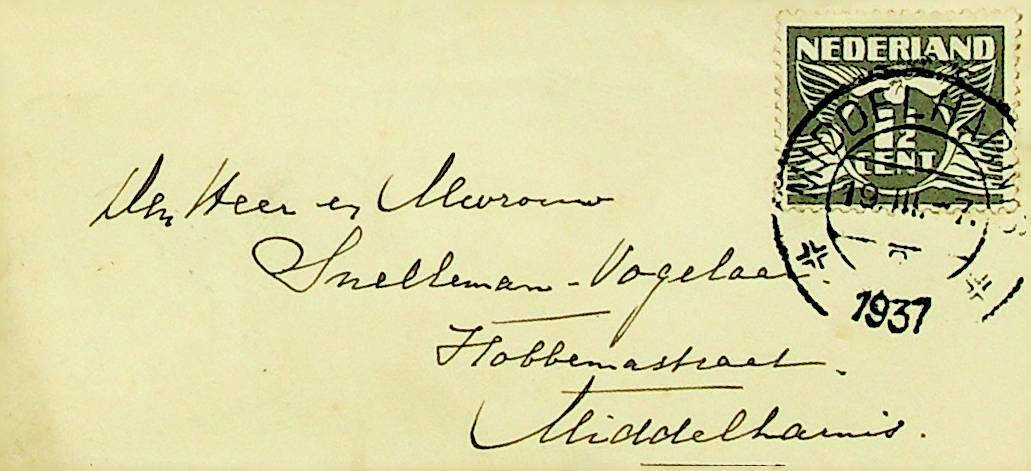 NEDERLAND
1½
CENT
MIDDELHAR
19.III.-7.
1937
Den Heer en Mevrouw
Snelleman-Vogelaar
Hobbemastraat.
Middelharnis.